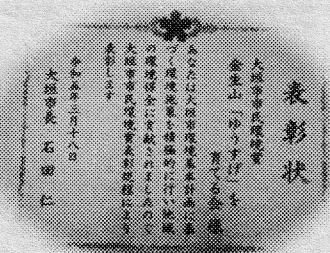 表彰状
大垣市市民環境賞
金生山「ゆうすげ」を
育てる会 様
あなたは大垣市環境基本計画に基
づく環境施策を積極的に行い地域
の環境保全に貢献されましたので
大垣市市民環境賞表彰規程により
表彰します
令和五年三月十八日
大垣市長 石田仁